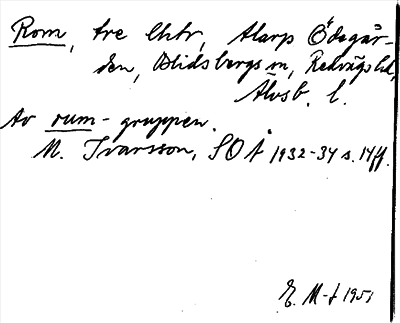 Rom, tre lhtr, Alarp Ödegår-
den, Blidsbergs sn, Redvägs hd,
Älvsb. l.
Av rum-gruppen.
N. Ivarsson, SOÅ 1932-34 s. 14ff.
E. M-f 1951